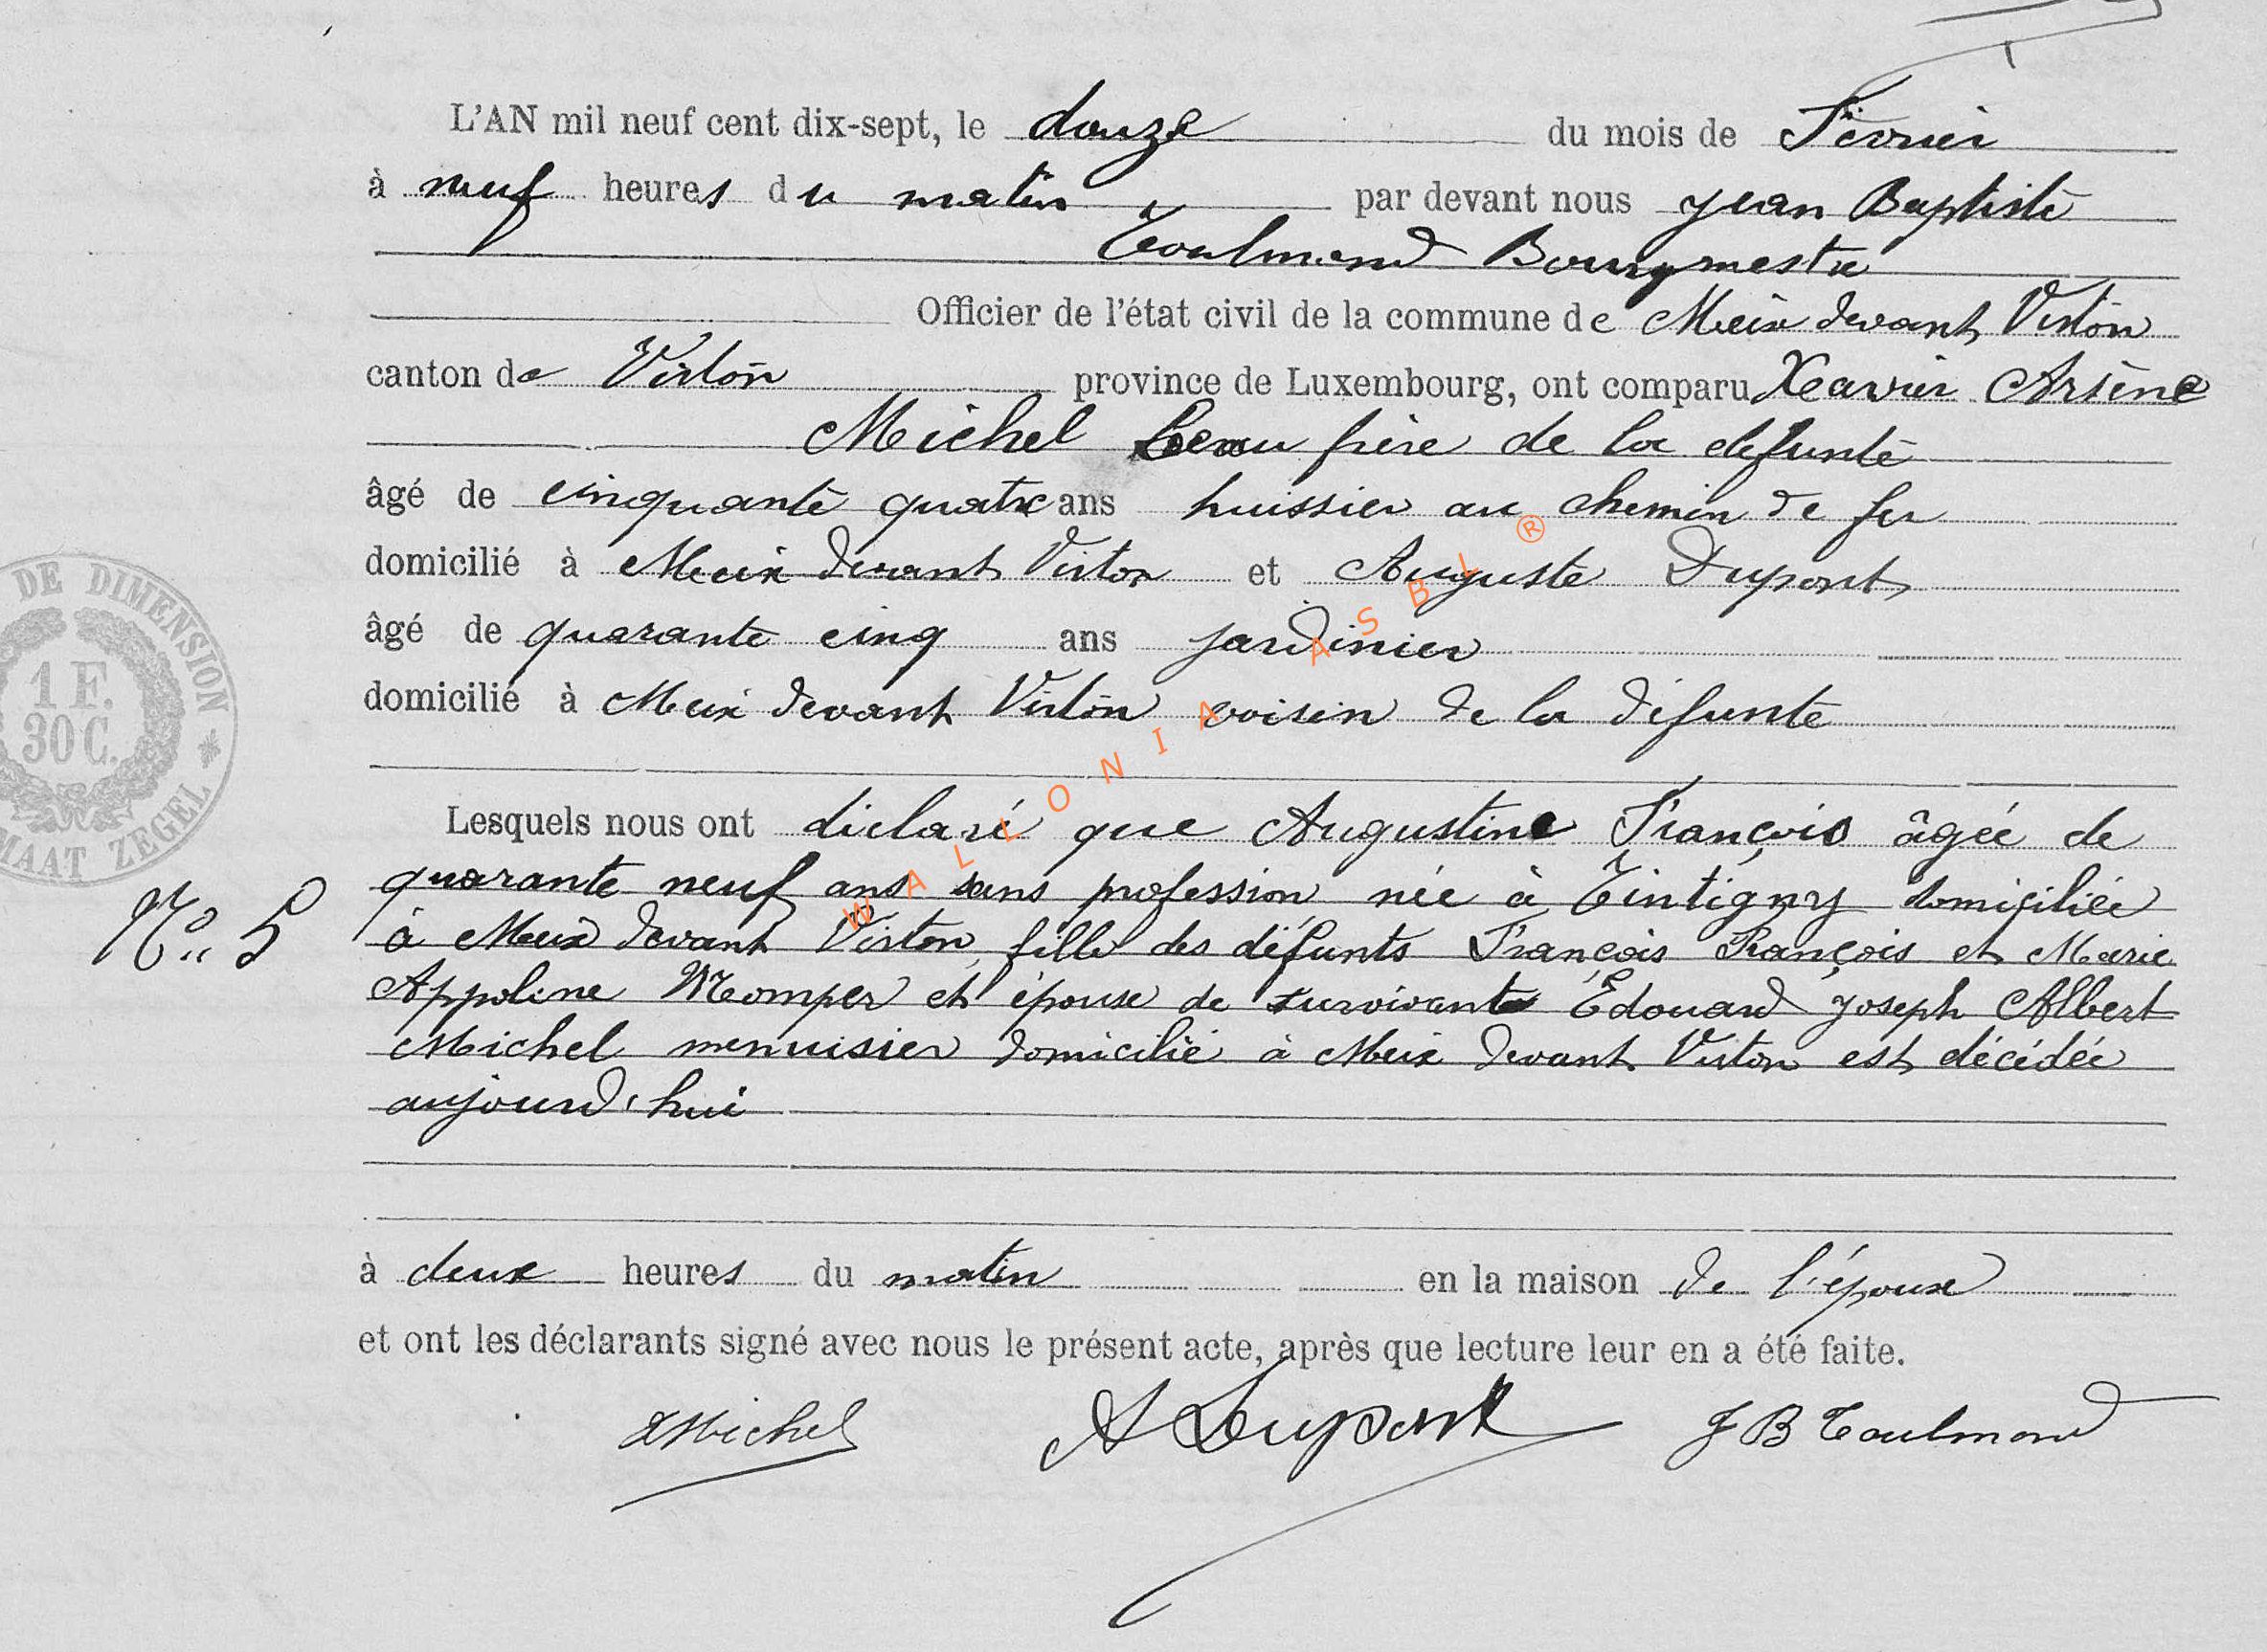 L'AN mil neuf cent dix-sept, le douze du mois de Février
à neuf heures du matin par devant nous Jean Baptiste
Toulmond Bourgmestre
Officier de l'état civil de la commune de Meix devant Virton
canton de Virton province de Luxembourg, ont comparu Xavier Arsène
Michel beau frère de la défunte
âgé de cinquante quatre ans huissier au chemin de fer
domicilié à Meix devant Virton et Auguste Dupont
âgé de quarante cinq ans jardinier
domicilié à Meix devant Virton voisin de la défunte
DE DIMENSION
1 F.
30 C.
MAAT ZEGEL
Lesquels nous ont déclaré que Augustine François âgée de
quarante neuf ans sans profession née à Tintigny domiciliée
N° 5
à Meix devant Virton, fille des défunts François François et Marie
Appoline Momper et épouse de survivante Édouard Joseph Albert
Michel menuisier domicilié à Meix devant Virton est décédée
aujourd'hui
à deux heures du matin en la maison de l'époux
et ont les déclarants signé avec nous le présent acte, après que lecture leur en a été faite.
XMichel A Dupont J B Toulmond
WALLONIA ASBL ®